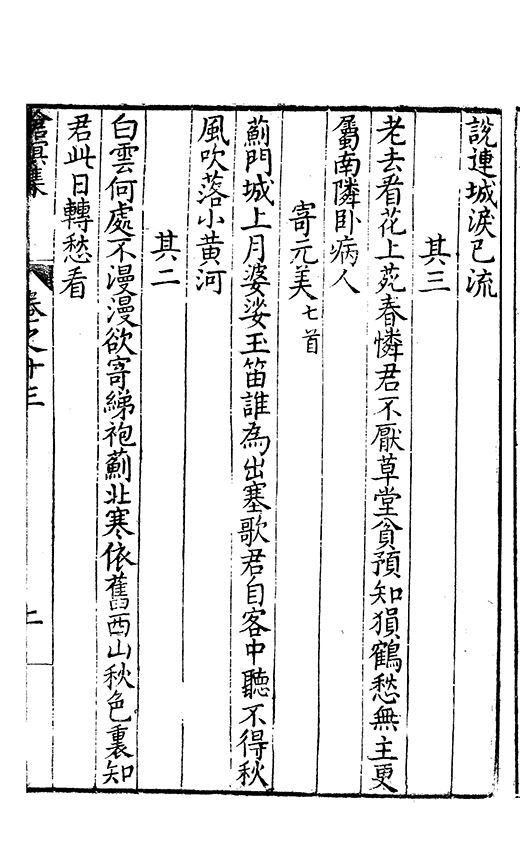 說連城淚已流
其三
老去看花上苑春憐君不厭草堂貧預知猿鶴愁無主更
屬南隣卧病人
寄元美七首
薊門城上月婆娑玉笛誰為出塞歌君自客中聽不得秋
風吹落小黃河
其二
白雲何處不漫漫欲寄綈袍薊北寒依舊西山秋色裏知
君此日轉愁看
滄溟集
卷之十三